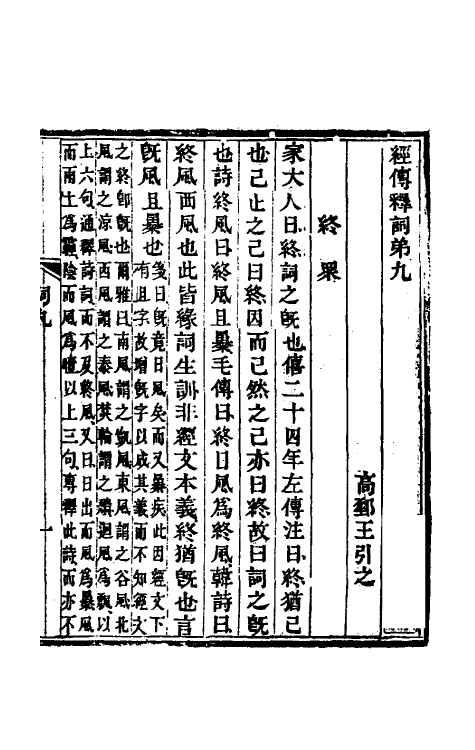 經傳釋詞第九
高郵王引之
終 眾
家大人曰終詞之旣也僖二十四年左傳注曰終猶已
也已止之已曰終因而已然之已亦曰終故曰詞之旣
也詩終風曰終風且暴毛傳曰終日風爲終風韓詩曰
終風西風也此皆緣詞生訓非經文本義終猶旣也言
旣風且暴也
箋曰旣竟日風矣而又暴疾此因經文下
有且字故增旣字以成其義而不知經文
之終卽旣也爾雅曰南風謂之凱風東風謂之谷風北
風謂之涼風西風謂之泰風焚輪謂之穨迴風爲飄以
上六句通釋詩詞而不及終風又曰日出而風爲暴風
而雨土爲霾陰而風爲曀以上三句專釋此詩而亦不
詞九
一